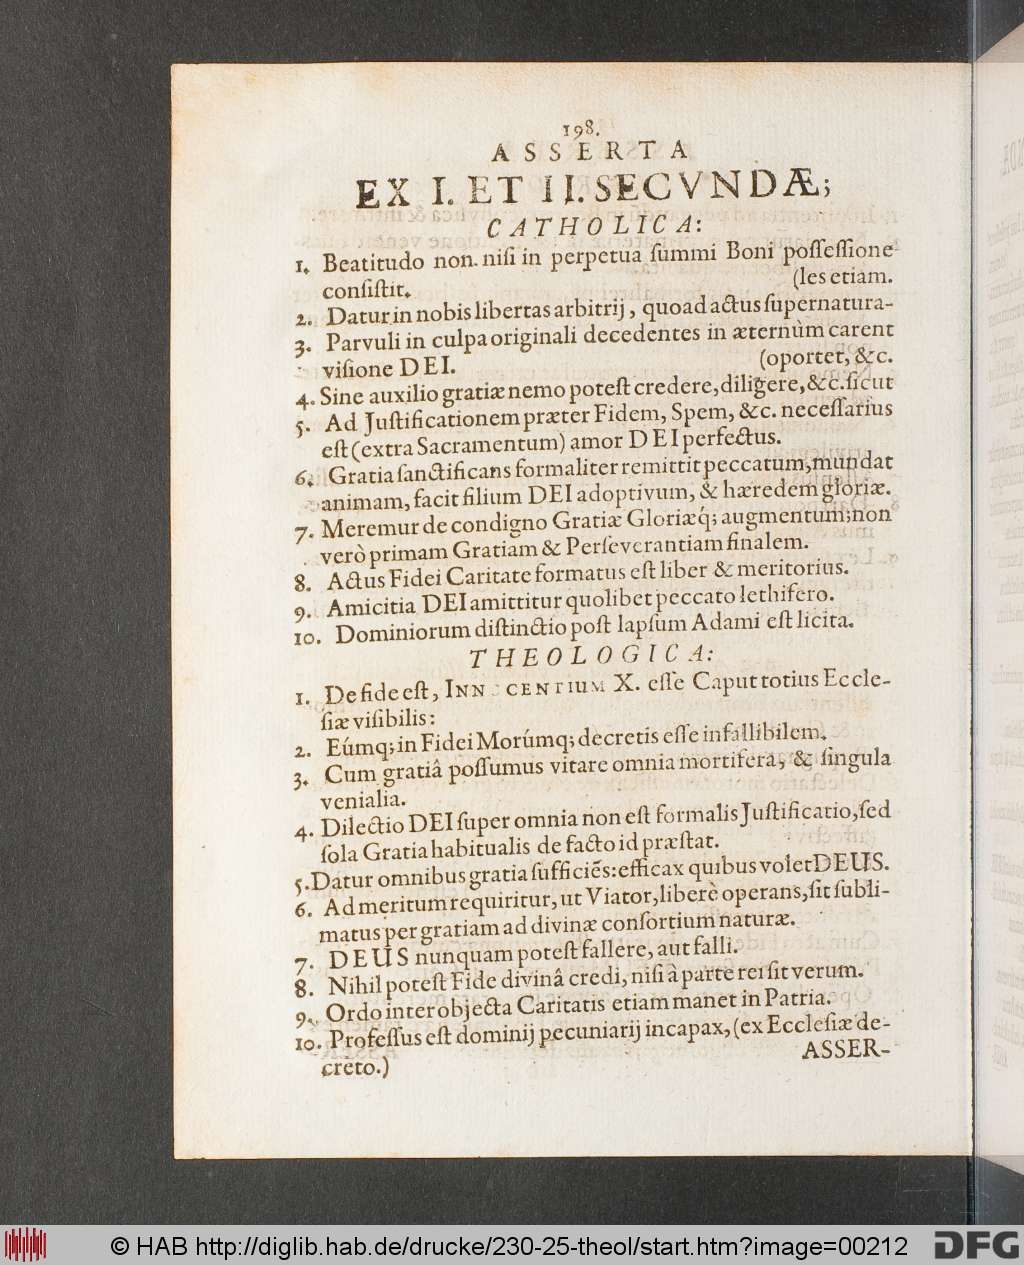 198.
ASSERTA
EX I. ET II. SECVNDÆ;
CATHOLICA:
1. Beatitudo non nisi in perpetua summi Boni possessione
consistit. (les etiam.
2. Datur in nobis libertas arbitrij, quoad actus supernatura-
3. Parvuli in culpa originali decedentes in æternùm carent
visione DEI. (oportet, &c.
4. Sine auxilio gratiæ nemo potest credere, diligere, &c. sicut
5. Ad Justificationem præter Fidem, Spem, &c. necessarius
est (extra Sacramentum) amor DEI perfectus.
6. Gratia sanctificans formaliter remittit peccatum, mundat
animam, facit filium DEI adoptivum, & hæredem gloriæ.
7. Meremur de condigno Gratiæ Gloriæq́; augmentum; non
verò primam Gratiam & Perseverantiam finalem.
8. Actus Fidei Caritate formatus est liber & meritorius.
9. Amicitia DEI amittitur quolibet peccato lethifero.
10. Dominiorum distinctio post lapsum Adami est licita.
THEOLOGICA:
1. De fide est, INNOCENTIUM X. esse Caput totius Eccle-
siæ visibilis:
2. Eúmq; in Fidei Morúmq; decretis esse infallibilem.
3. Cum gratiâ possumus vitare omnia mortifera, & singula
venialia.
4. Dilectio DEI super omnia non est formalis Justificatio, sed
sola Gratia habitualis de facto id præstat.
5. Datur omnibus gratia sufficiẽs: efficax quibus volet DEUS.
6. Ad meritum requiritur, ut Viator, liberè operans, sit subli-
matus per gratiam ad divinæ consortium naturæ.
7. DEUS nunquam potest fallere, aut falli.
8. Nihil potest Fide divinâ credi, nisi à parte rei sit verum.
9. Ordo inter objecta Caritatis etiam manet in Patria.
10. Professus est dominij pecuniarij incapax, (ex Ecclesiæ de-
creto.) ASSER-
© HAB http://diglib.hab.de/drucke/230-25-theol/start.htm?image=00212 DFG